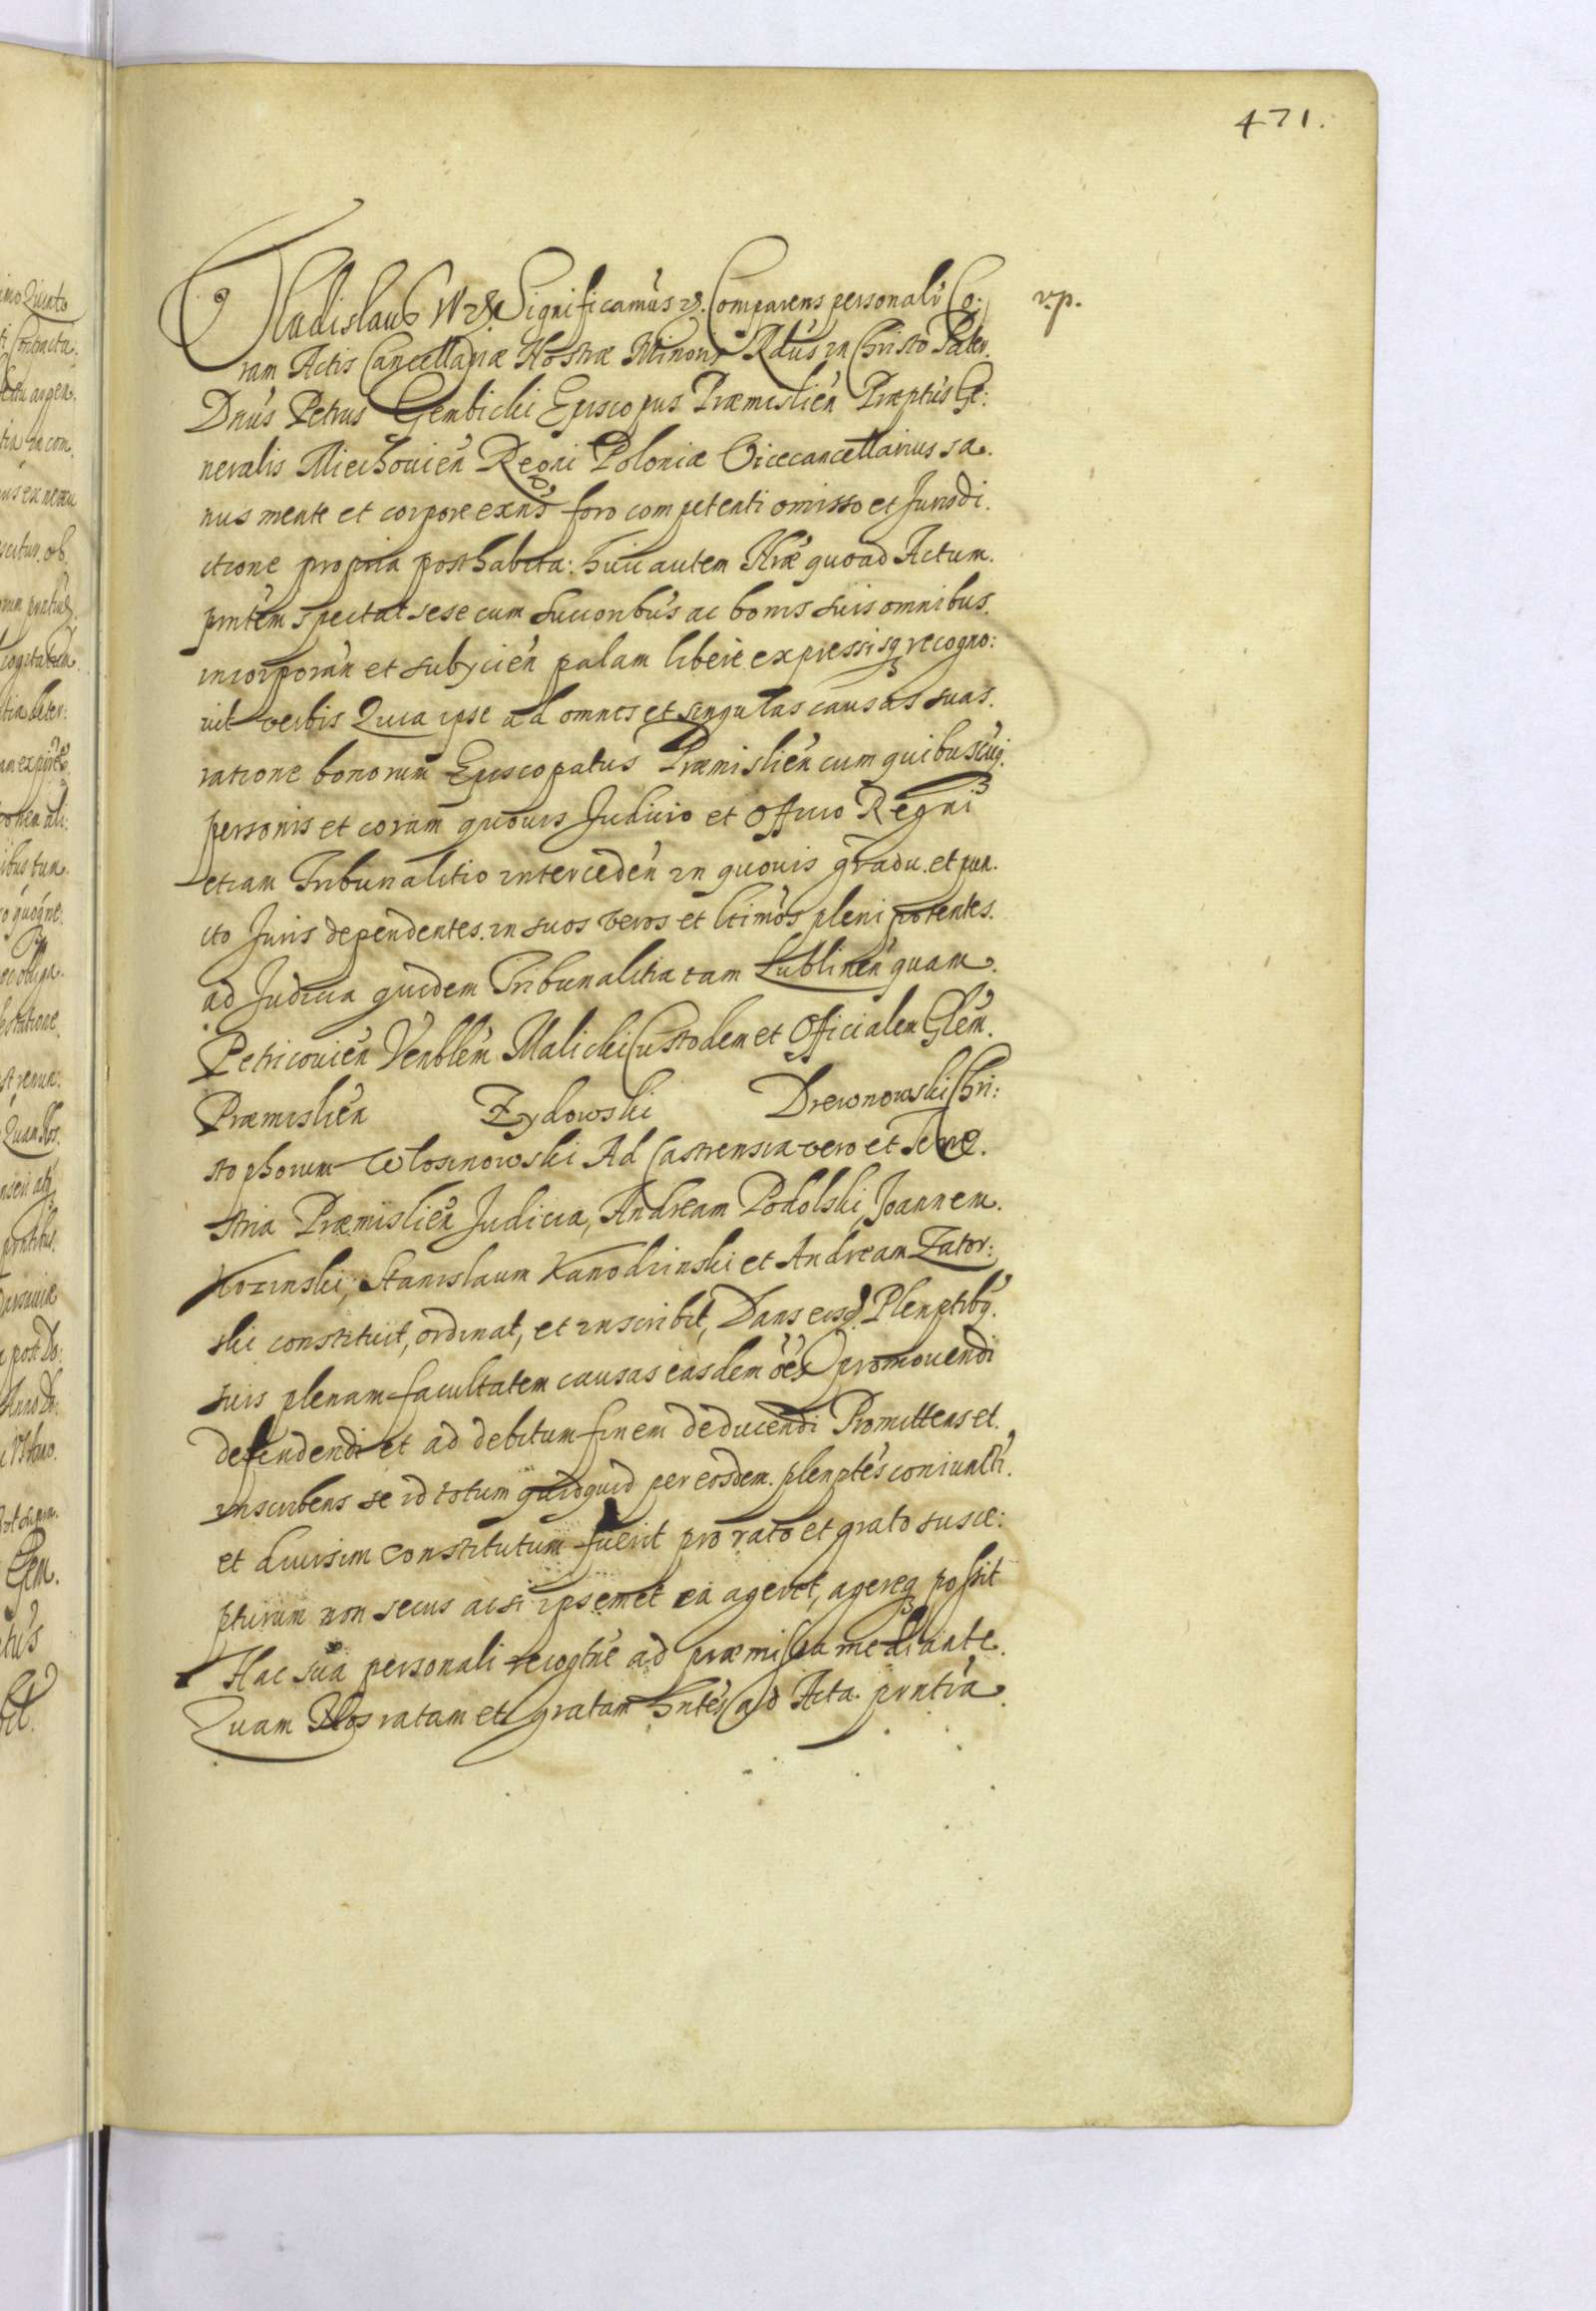 471.
Vladislaus IV &c. Significamus &c. Comparens personalr Co:
v.p.
ram Actis Cancellariæ Nostræ Minoris Rdus in Christo Pater
Dnus Petrus Gembicki Episcopus Præmislien Præptus Ge:
neralis Miechouien Regni Poloniæ Vicecancellarius sa.
nus mente et corpore exns foro competenti omisso et Jurisdi.
ctione propria posthabita: huic autem Nræ quoad Actum.
pntem spectat sese cum Succoribus ac bonis suis omnibus.
incorporan et subycien palam libere expressisq recogno:
uit verbis Quia ipse ad omnes et singulas causas suas.
ratione bonorum Episcopatus Præmislien cum quibuscuq.
personis et coram quouis Judicio et Officio Regni
etiam Tribunalitio interceden in quouis gradu. et pun.
cto Juris dependentes. in suos veros et ltimos plenipotentes.
ad Judicia quidem Tribunalitia tam Lublinen quam.
Petricouien Venblem Malicki Custodem et Officialem Glem.
Præmislien Zydowski Drewnowski Chri:
stophorum Wlosinowski Ad Castrensia vero et Terre.
stria Præmislien Judicia, Andream Podolski, Joannem.
Kozinski, Stanislaum Kanodzinski et Andream Zator:
ski constituit, ordinat, et inscribit, Dans eisd. Plenptibq.
suis plenam facultatem causas easdem oes promouendi
defendendi et ad debitum finem deducendi Promittens et.
inscribens se id totum quidquid per eosdem. plenptes coniunctr.
et diuisim constitutum fuerit pro rato et grato susce:
pturum non secus acsi ipsemet ea ageret, agereq possit
Hac sua personali recogtne ad præmissa mediante.
Quam Nos ratam et gratam hntes ad Acta. pntia